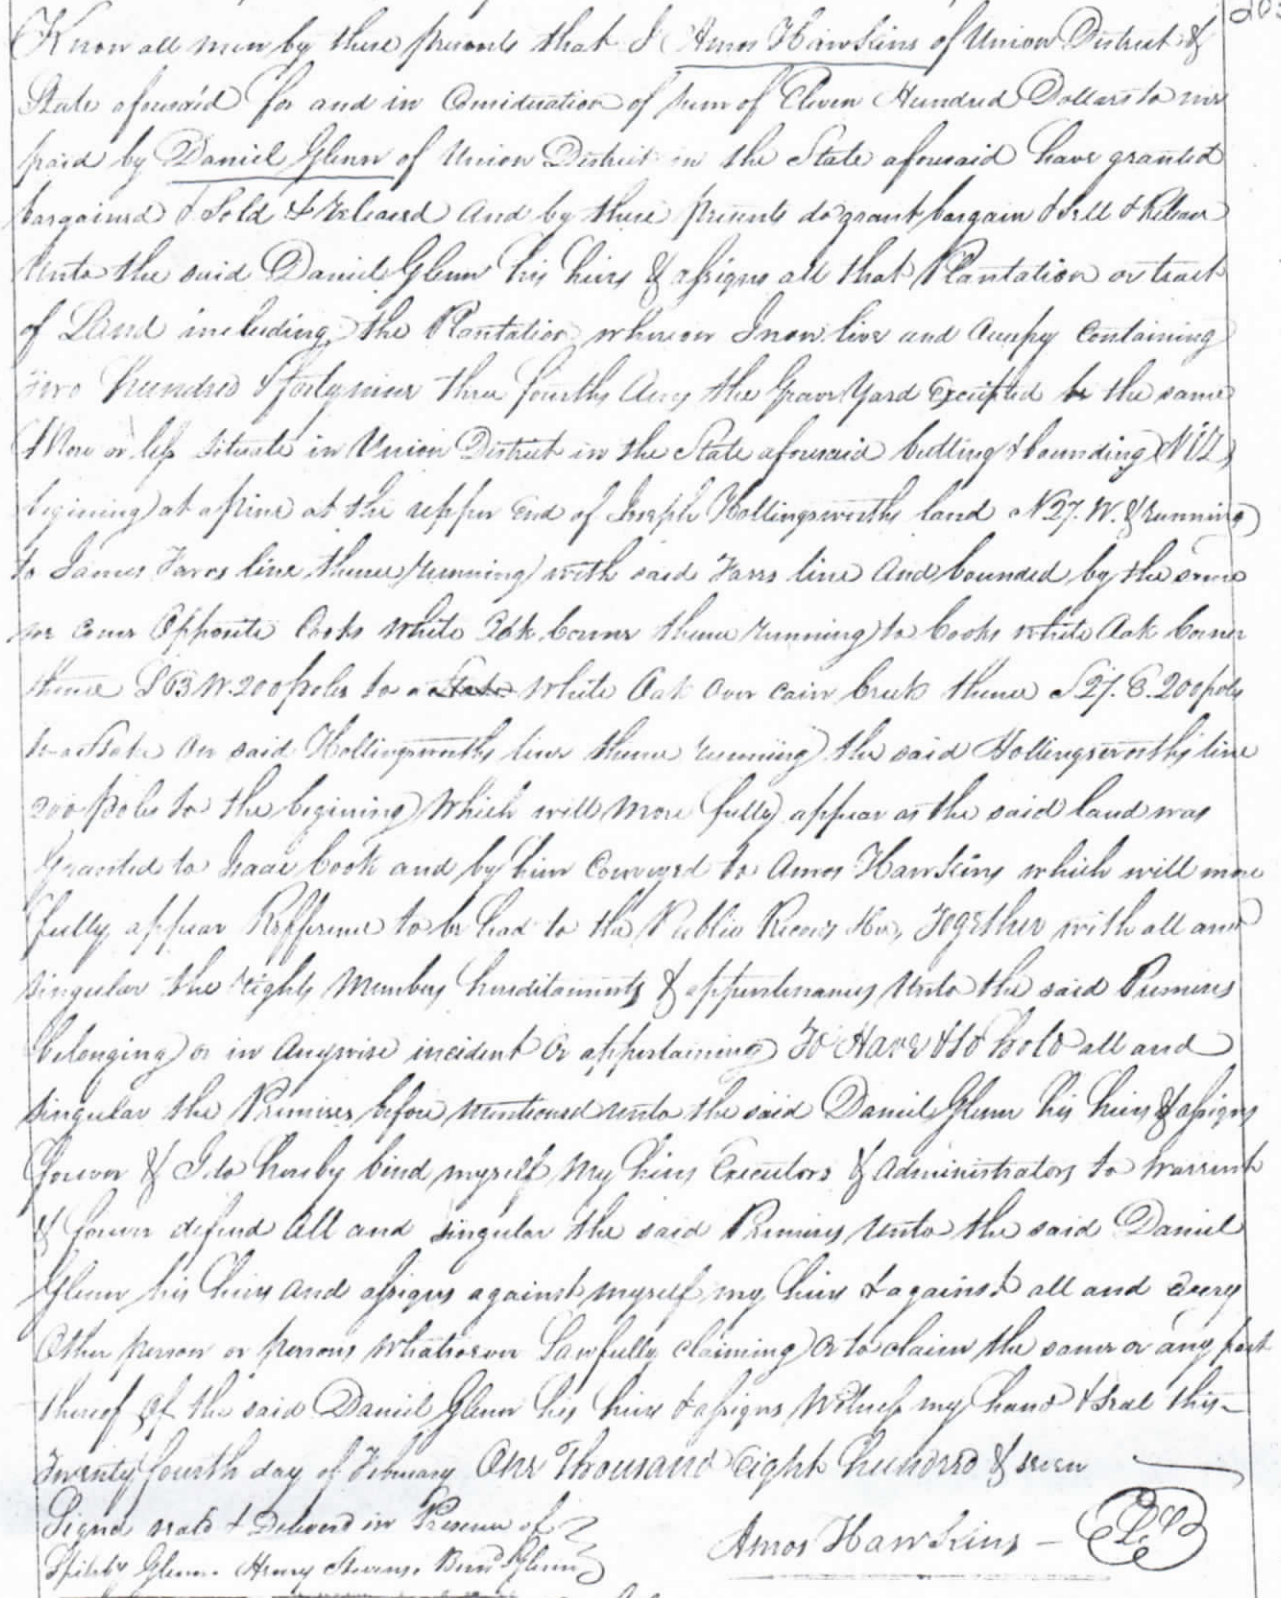 203
Know all men by these presents that I Amos Hawkins of Union District &
State aforesaid for and in Consideration of sum of Eleven Hundred Dollars to me
paid by Daniel Glenn of Union District in the State aforesaid have granted
bargained & Sold & Released and by these presents do grant bargain & Sell & Release
Unto the said Daniel Glenn his heirs & assigns all that Plantation or tract
of Land including the Plantation whereon I now live and Occupy Containing
Two hundred & forty nine three fourths Acres the Grave Yard Excepted be the same
More or less Situate in Union District in the State aforesaid butting & bounding (VIZ)
begining at a pine at the upper End of Joseph Hollingsworths land N 27. W. & running
to James Farrs line thence running with said Farrs line and bounded by the same
Corner Opposite Cooks White Oak Corner thence running to Cooks white Oak Corner
thence S 63 W. 200 poles to a White Oak Over Cain Creek thence S 27. E. 200 poles
to a Stake On said Hollingsworths line thence running the said Hollingsworths line
200 poles to the begining Which will more fully appear as the said land was
Granted to Isaac Cook and by him Conveyed to Amos Hawkins which will more
fully appear Refference to be had to the Public Records Together with all and
Singular the rights Members hereditaments & appurtenances Unto the said Premises
belonging or in Anywise incident Or appertaining To Have & to hold all and
Singular the Premises before mentioned unto the said Daniel Glenn his heirs & assigns
forever & I do hereby bind myself My heirs Executors & Administrators to Warrent
& forever defend All and Singular the said Premises Unto the said Daniel
Glenn his heirs and assigns against myself my heirs & against all and Every
Other person or persons Whatsoever Lawfully claiming Or to claim the same or any part
thereof Of the said Daniel Glenn his heirs & assigns Witness my hand & Seal this
Twenty fourth day of February One Thousand Eight hundred & seven
Signd seald & Deliverd in Presence of
Glenn. Henry Stevens. Glenn
Amos Hawkins